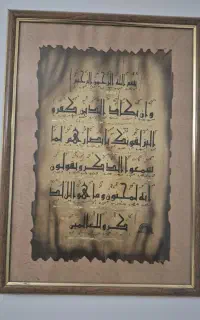 بسم الله الرحمن الرحيم
و ان يكاد الذين كفروا
ليزلقونك بابصارهم لما
سمعوا الذكر و يقولون
انه لمجنون و ما هو الا ذ
كر للعالمين